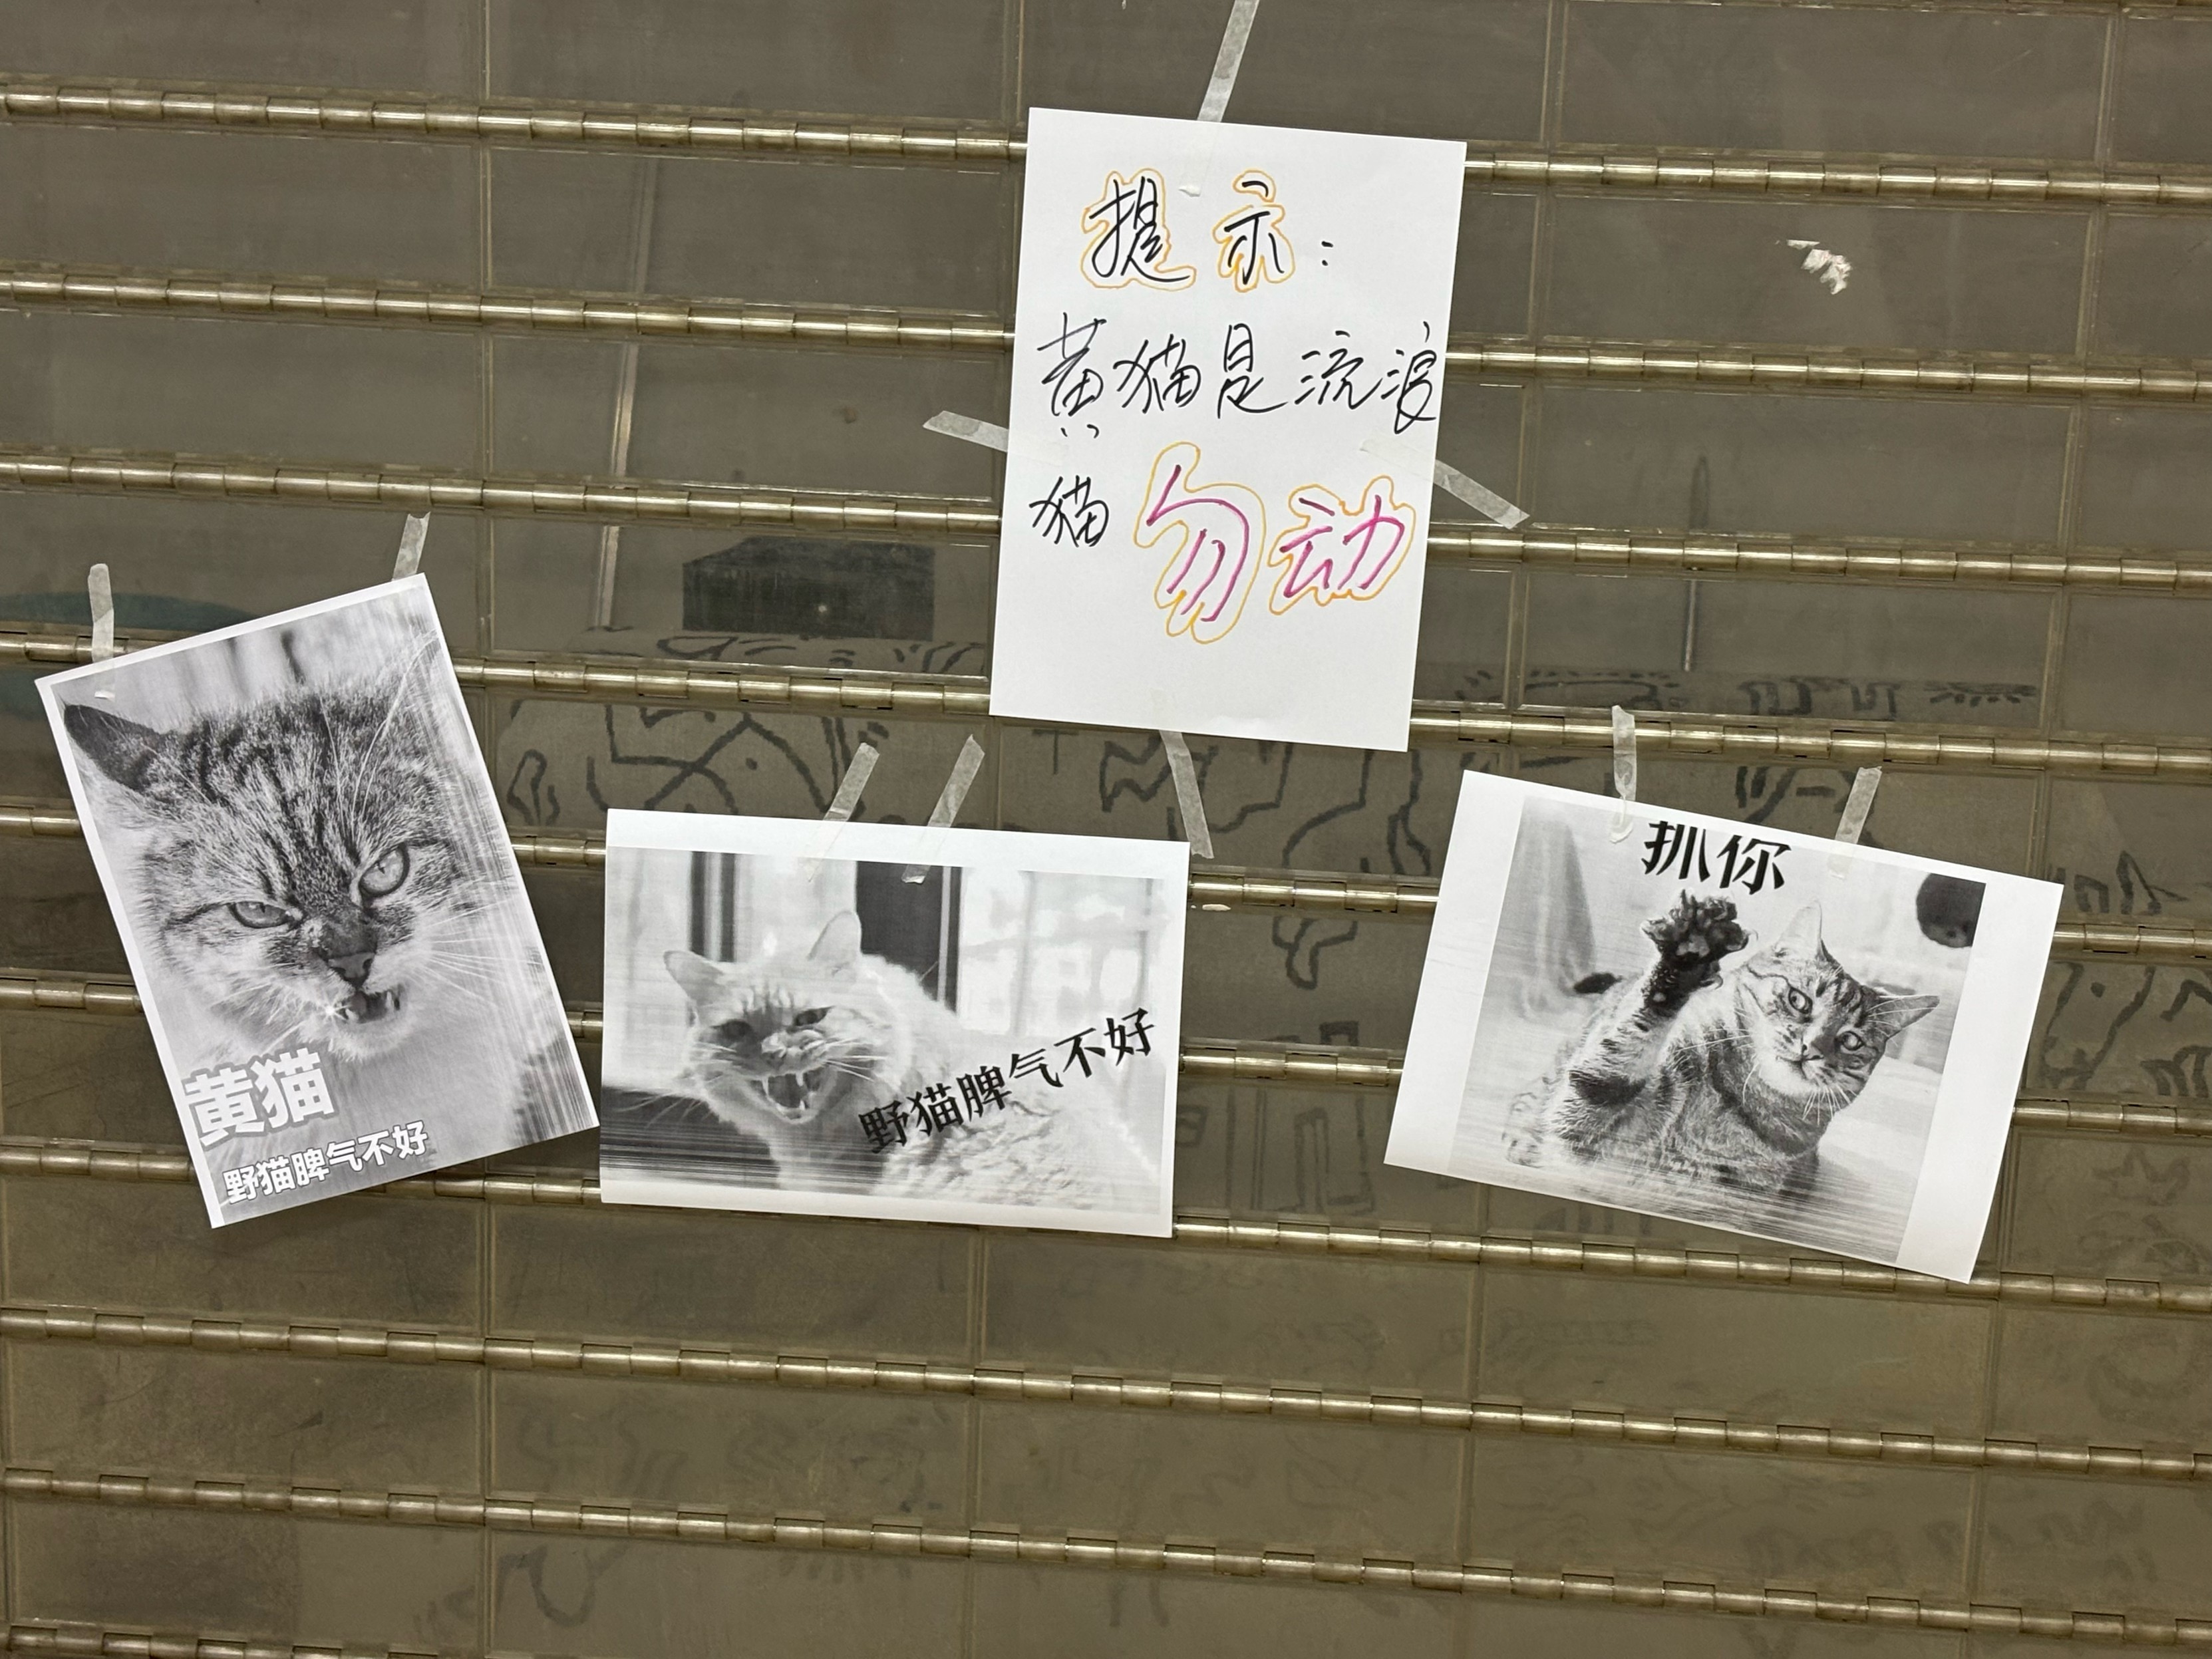 提示：
黄猫是流浪
猫 勿动
黄猫
野猫脾气不好
野猫脾气不好
抓你